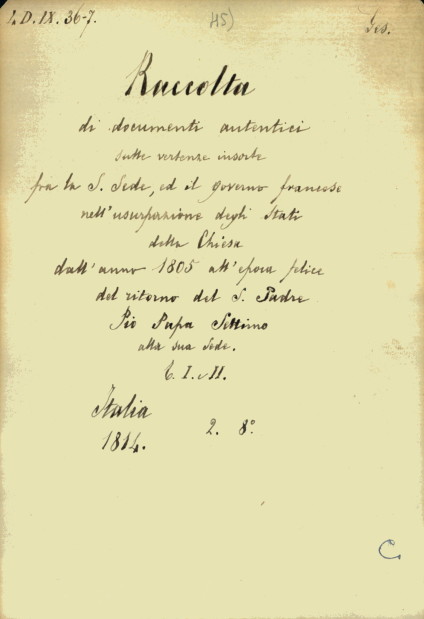 I. D. IX. 36-7.
HS)
Ges.
Raccolta
di documenti autentici
sulle vertenze insorte
fra la S. Sede, ed il governo francese
nell'usurpazione degli Stati
della Chiesa
dall'anno 1805 all'epoca felice
del ritorno del S. Padre
Pio Papa Settimo
alla sua Sede.
T. I. e II.
Italia
1814.
2. 8°.
C.